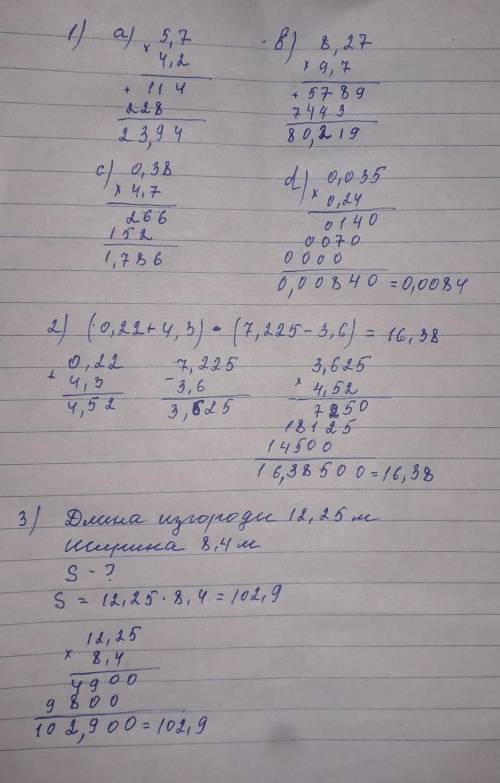 1) a) 5,7
× 4,2
+ 114
228
23,94
в) 8,27
× 9,7
+ 5789
7443
80,219
c) 0,38
× 4,7
266
152
1,786
d) 0,035
× 0,24
0140
0070
0000
0,00840 = 0,0084
2) (0,22 + 4,3) • (7,225 - 3,6) = 16,38
+ 0,22
4,3
4,52
7,225
- 3,6
3,625
3,625
× 4,52
7250
18125
14500
16,38500 = 16,38
3) Длина изгороди 12,25 м
Ширина 8,4 м
S - ?
S = 12,25 · 8,4 = 102,9
12,25
× 8,4
4900
9800
102,900 = 102,9